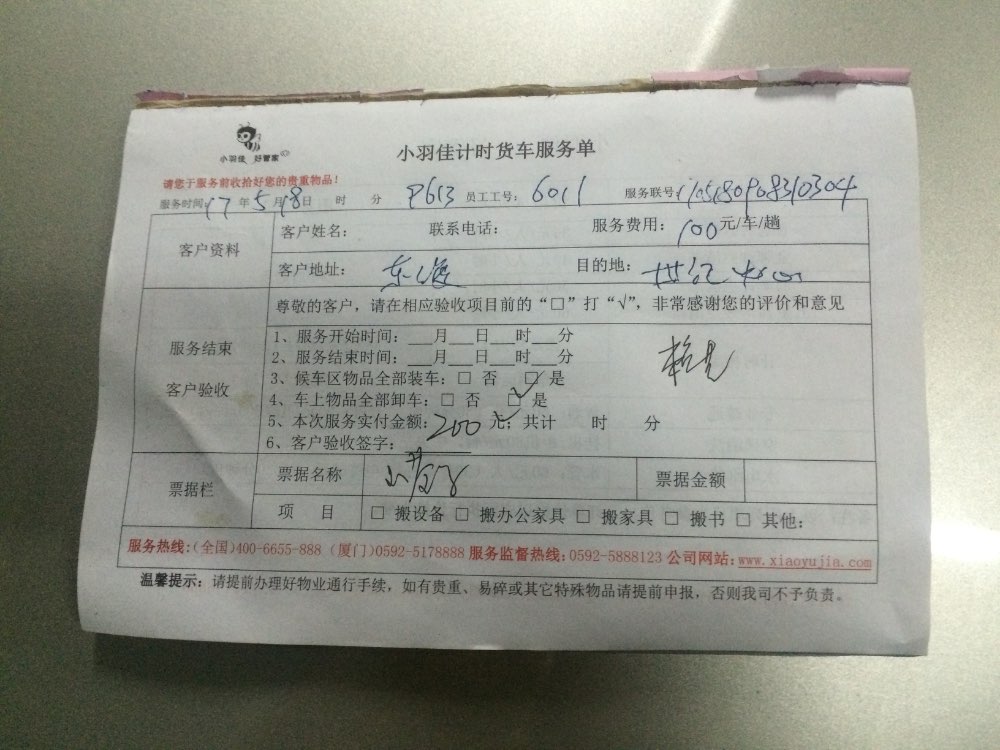 小羽佳 好管家
小羽佳计时货车服务单
请您于服务前收拾好您的贵重物品！
服务时间：17年5月18日 时 分 P613 员工工号：6011 服务联号：
客户资料
客户姓名： 联系电话： 服务费用：100元/车/趟
客户地址：东海 目的地：世纪
服务结束
客户验收
尊敬的客户，请在相应验收项目前的“□”打“√”，非常感谢您的评价和意见
1、服务开始时间：___月___日___时___分
2、服务结束时间：___月___日___时___分
3、候车区物品全部装车：□ 否 □ 是
4、车上物品全部卸车：□ 否 □ 是
5、本次服务实付金额：200元；共计 时 分
6、客户验收签字：
票据栏
票据名称 票据金额
项 目 □ 搬设备 □ 搬办公家具 □ 搬家具 □ 搬书 □ 其他：
服务热线：(全国)400-6655-888 (厦门)0592-5178888 服务监督热线：0592-5888123 公司网站：www.xiaoyujia.com
温馨提示：请提前办理好物业通行手续，如有贵重、易碎或其它特殊物品请提前申报，否则我司不予负责。